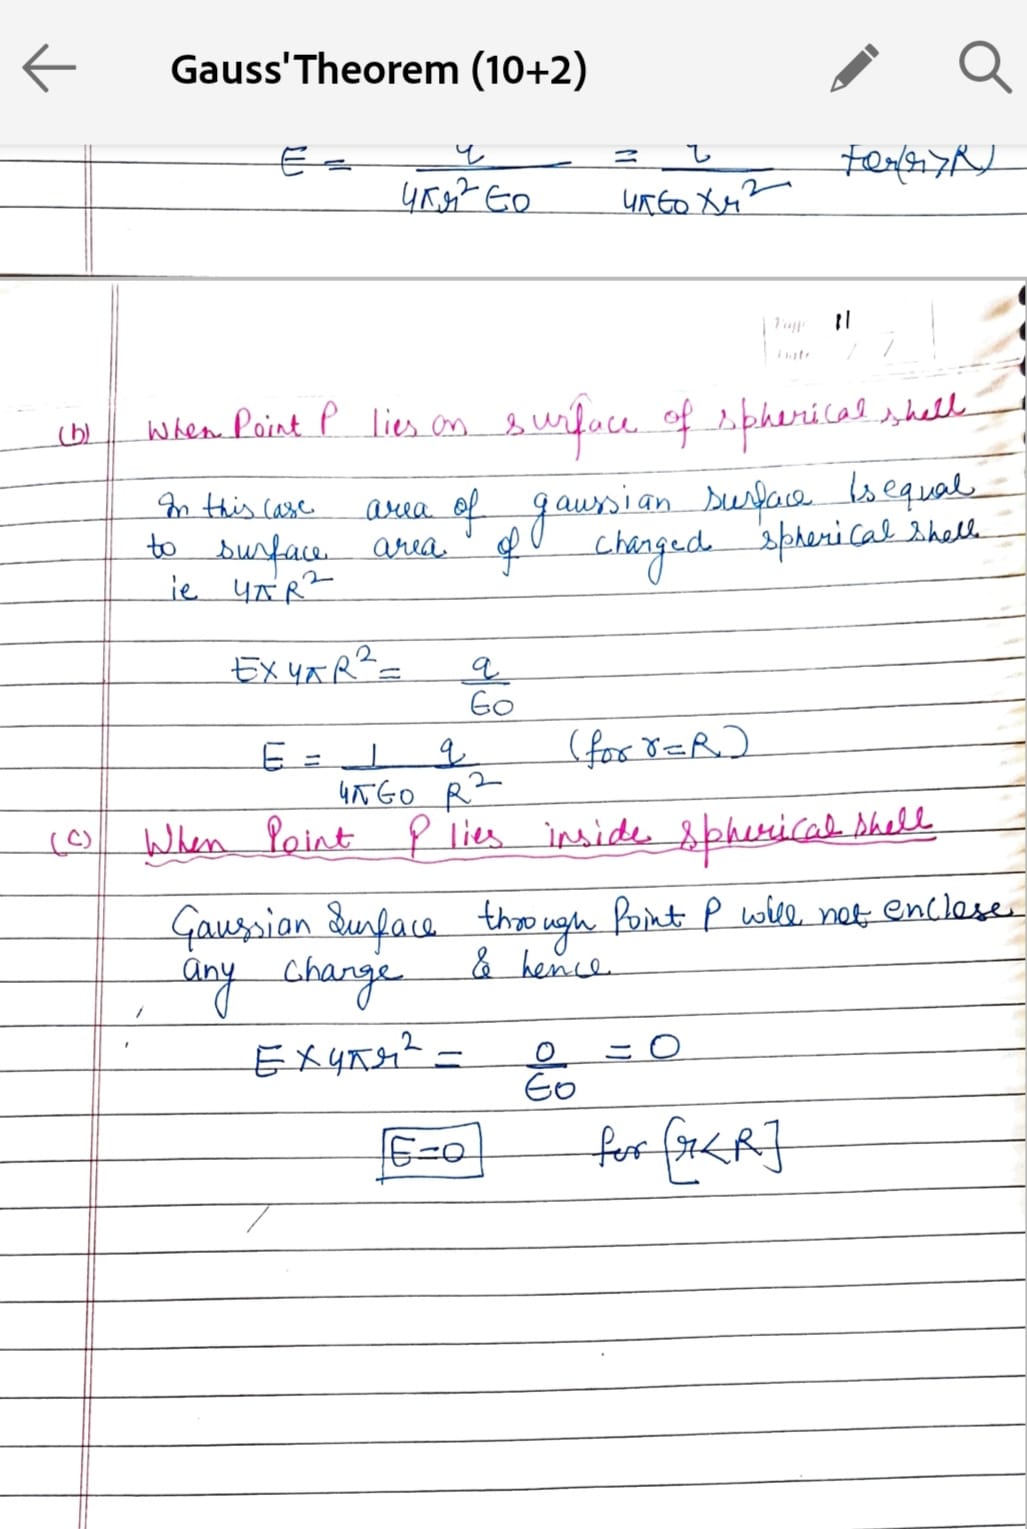 Gauss'Theorem (10+2)
E = q / 4πr² ϵ0 = q / 4πϵ0 × r² for(r>R)
Page 11
Date / /
(b) When Point P lies on surface of spherical shell
In this case area of gaussian surface Is equal
to surface area of charged spherical shell
ie 4πR²
E×4πR² = q / ϵ0
E = 1 / 4πϵ0 q / R² (for r=R)
(C) When Point P lies inside spherical shell
Gaussian Surface through Point P will not enclose
any charge & hence
E×4πr² = 0 / ϵ0 = 0
E=0 for [r<R]